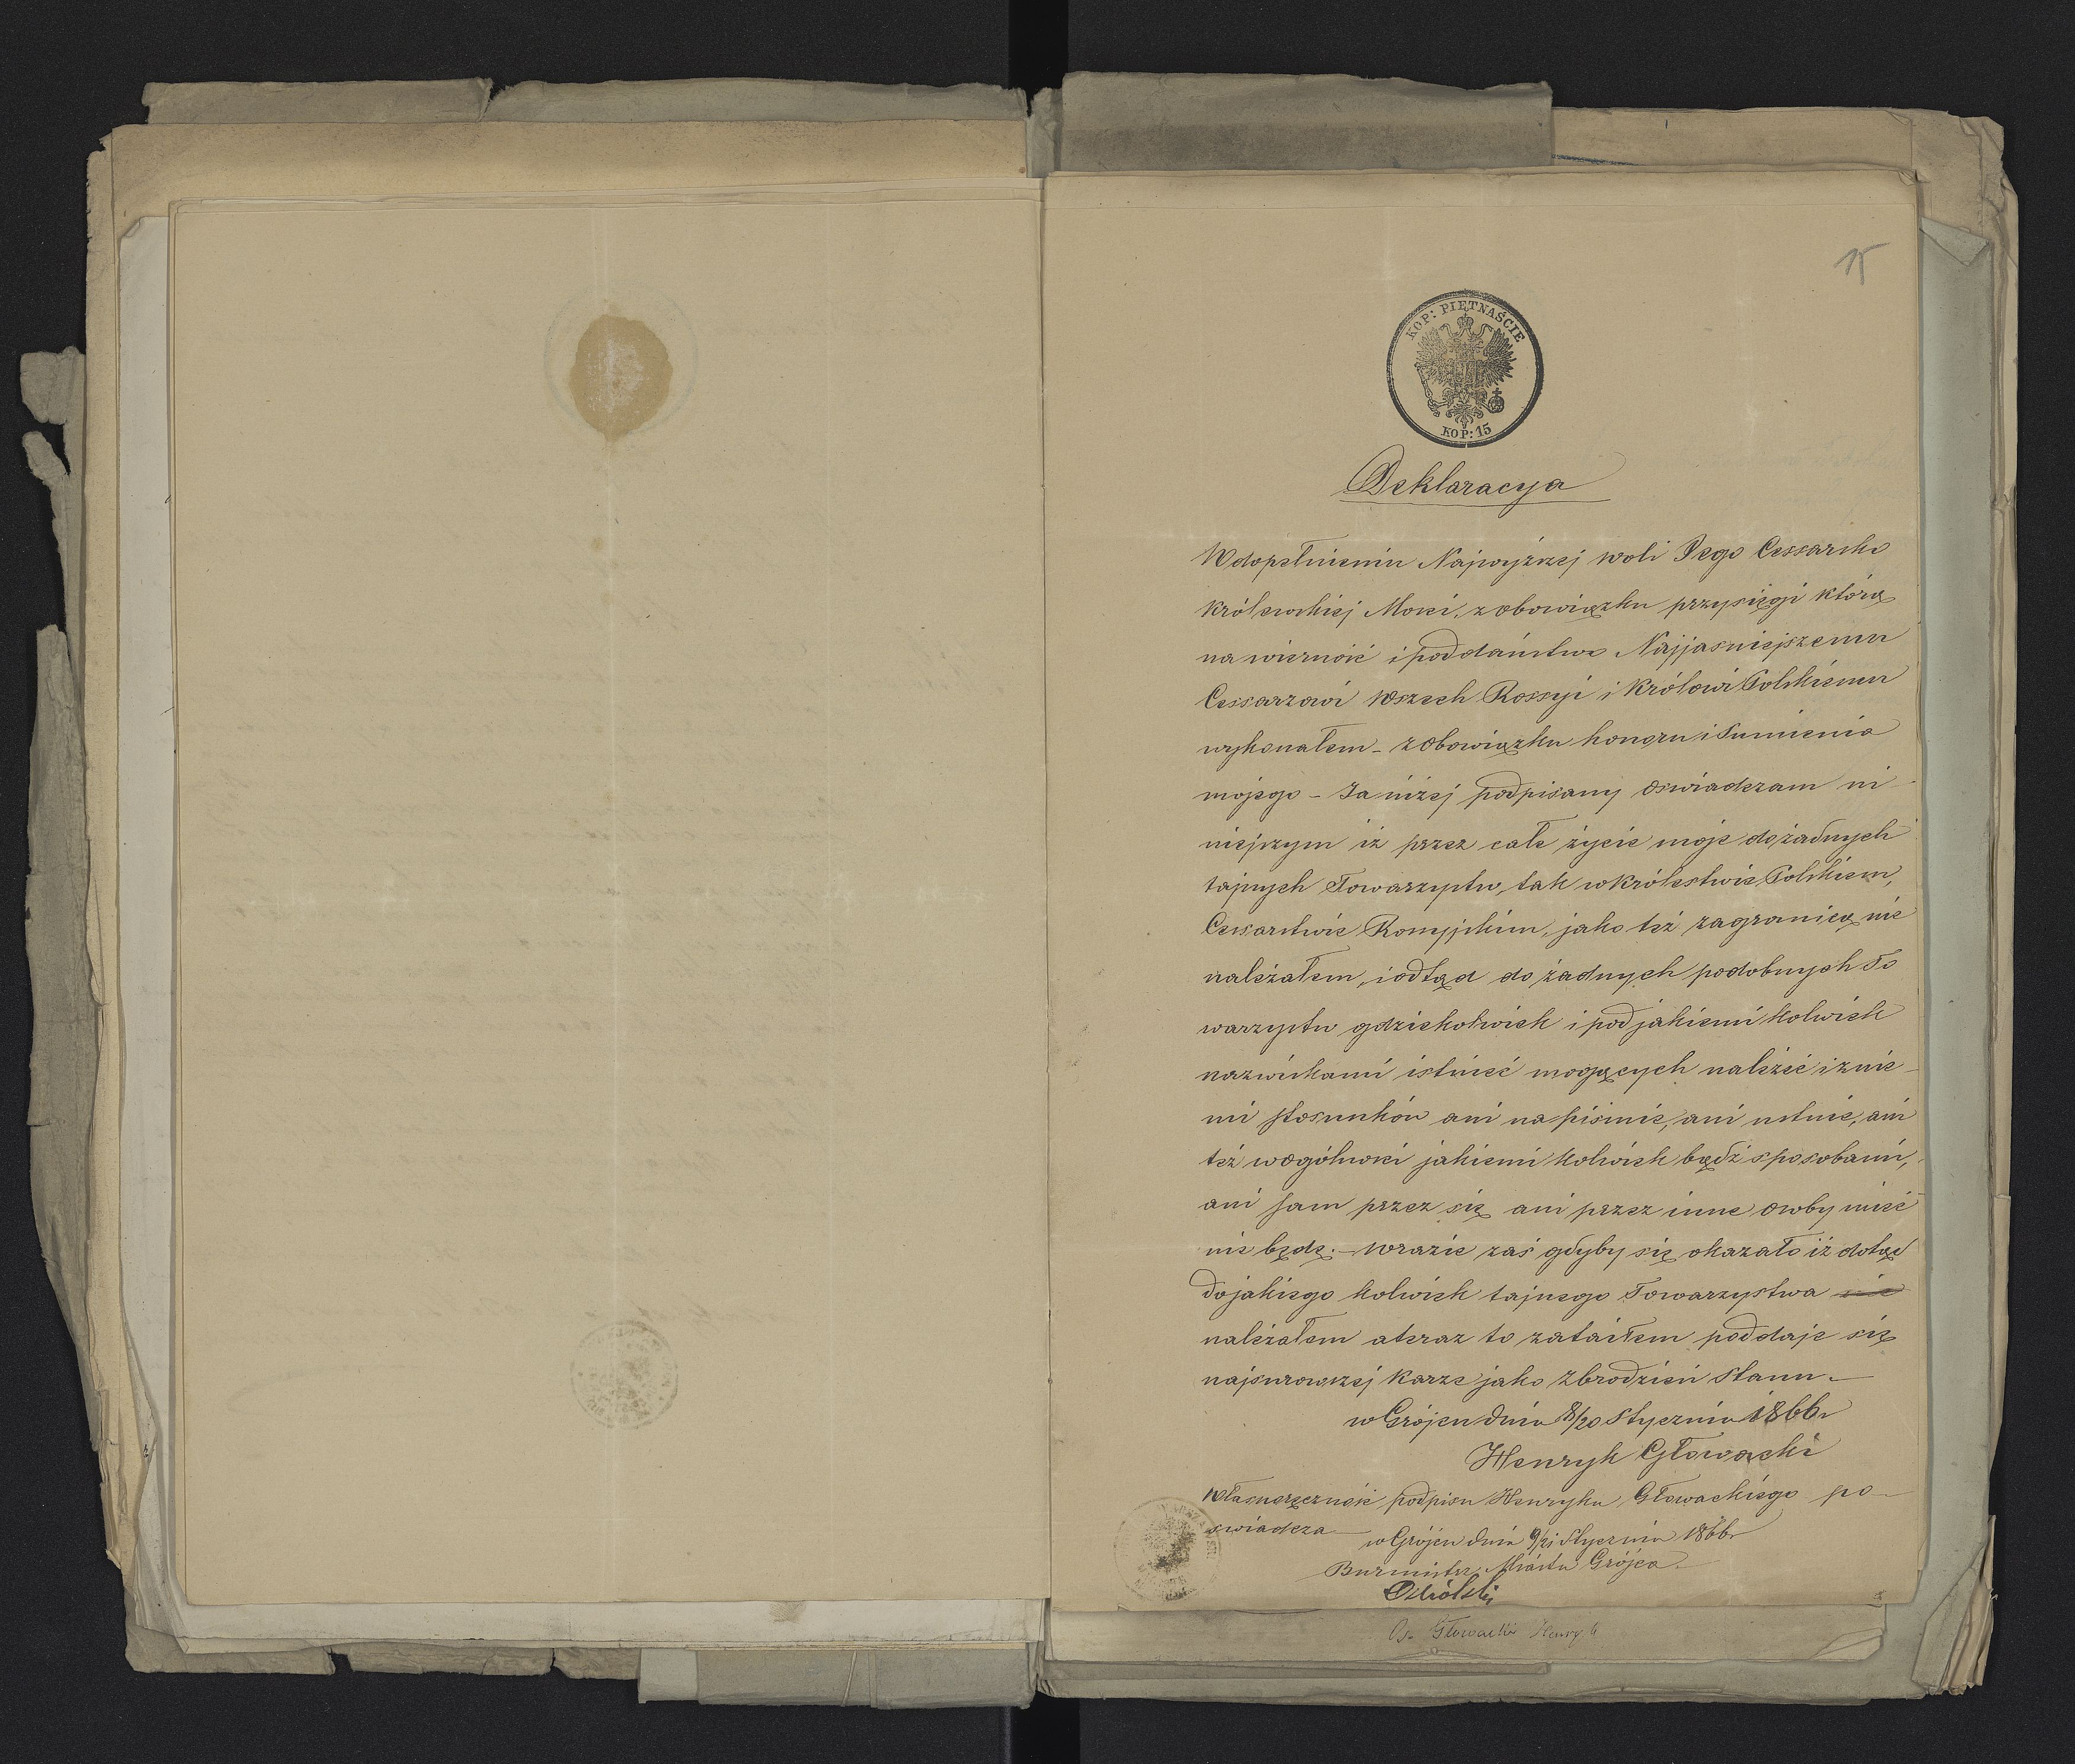 15
KOP: PIĘTNAŚCIE
KOP: 15
Deklaracyja
W dopełnieniu Najwyższej woli Jego Cessarsko
Królewskiej Mości, z obowiązku przysięgi którą
na wierność i poddaństwo Najjasniejszemu
Cessarzowi Wszech Rossyi i Królowi Polskiemu
wykonałem – z obowiązku honoru i Sumienia
mojego – Ja niżej podpisany oswiadczam ni
niejszym iż przez całe życie moje do żadnych
tajnych Towarzystw, tak w Królestwie Polskiem,
Cessarstwie Rossyjskim, jako też zagranicą nie
należałem, i odtąd do żadnych podobnych To
warzystw gdziekolwiek i pod jakiemi kolwiek
nazwiskami istnieć mogących należeć i z nie
mi stosunków ani na piśmie, ani ustnie, ani
też w ogólności jakiemi kolwiek bądź sposobami,
ani sam przez się ani przez inne osoby mieć
nie będę. – W razie zaś gdyby się okazało iż dotąd
do jakiego kolwiek tajnego Towarzystwa nie
należałem a teraz to zataiłem poddaje się
najsurowszej karze jako Zbrodzień Stanu. –
w Grójcu dnia 8/20 Stycznia 1866r
Henryk Głowacki
Własnoręczność podpisu Henryka Głowackiego po–
swiadcza
w Grójcu dnia 9/21 Stycznia 1866r
Burmistrz Miasta Grójca
Głowacki Henryk